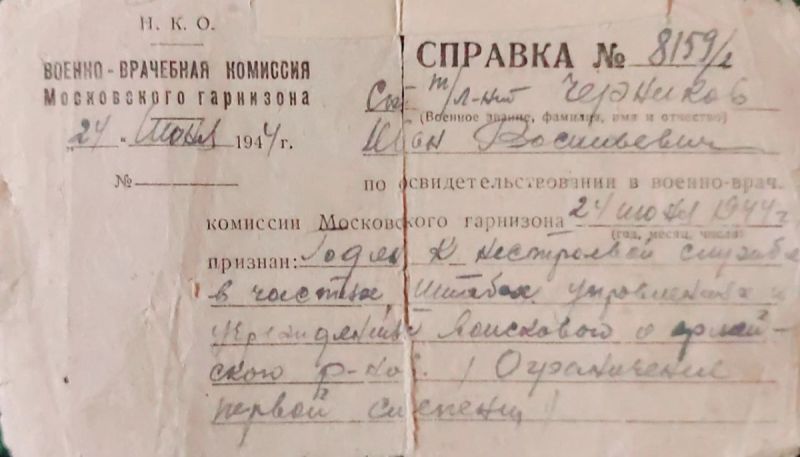 Н. К. О.
ВОЕННО-ВРАЧЕБНАЯ КОМИССИЯ
Московского гарнизона
„24" июня 1944 г.
№
СПРАВКА № 8159/2
т/л-нт Черников
(Военное звание, фамилия, имя и отчество)
Иван Васильевич
по освидетельствовании в военно-врач.
комиссии Московского гарнизона 24 июня 1944 г
(год, месяц, число)
признан: Годен к нестроевой службе
в частях, штабах, управлениях и
учреждениях войскового и армей-
ского р-нов. (Ограничения
первой степени)